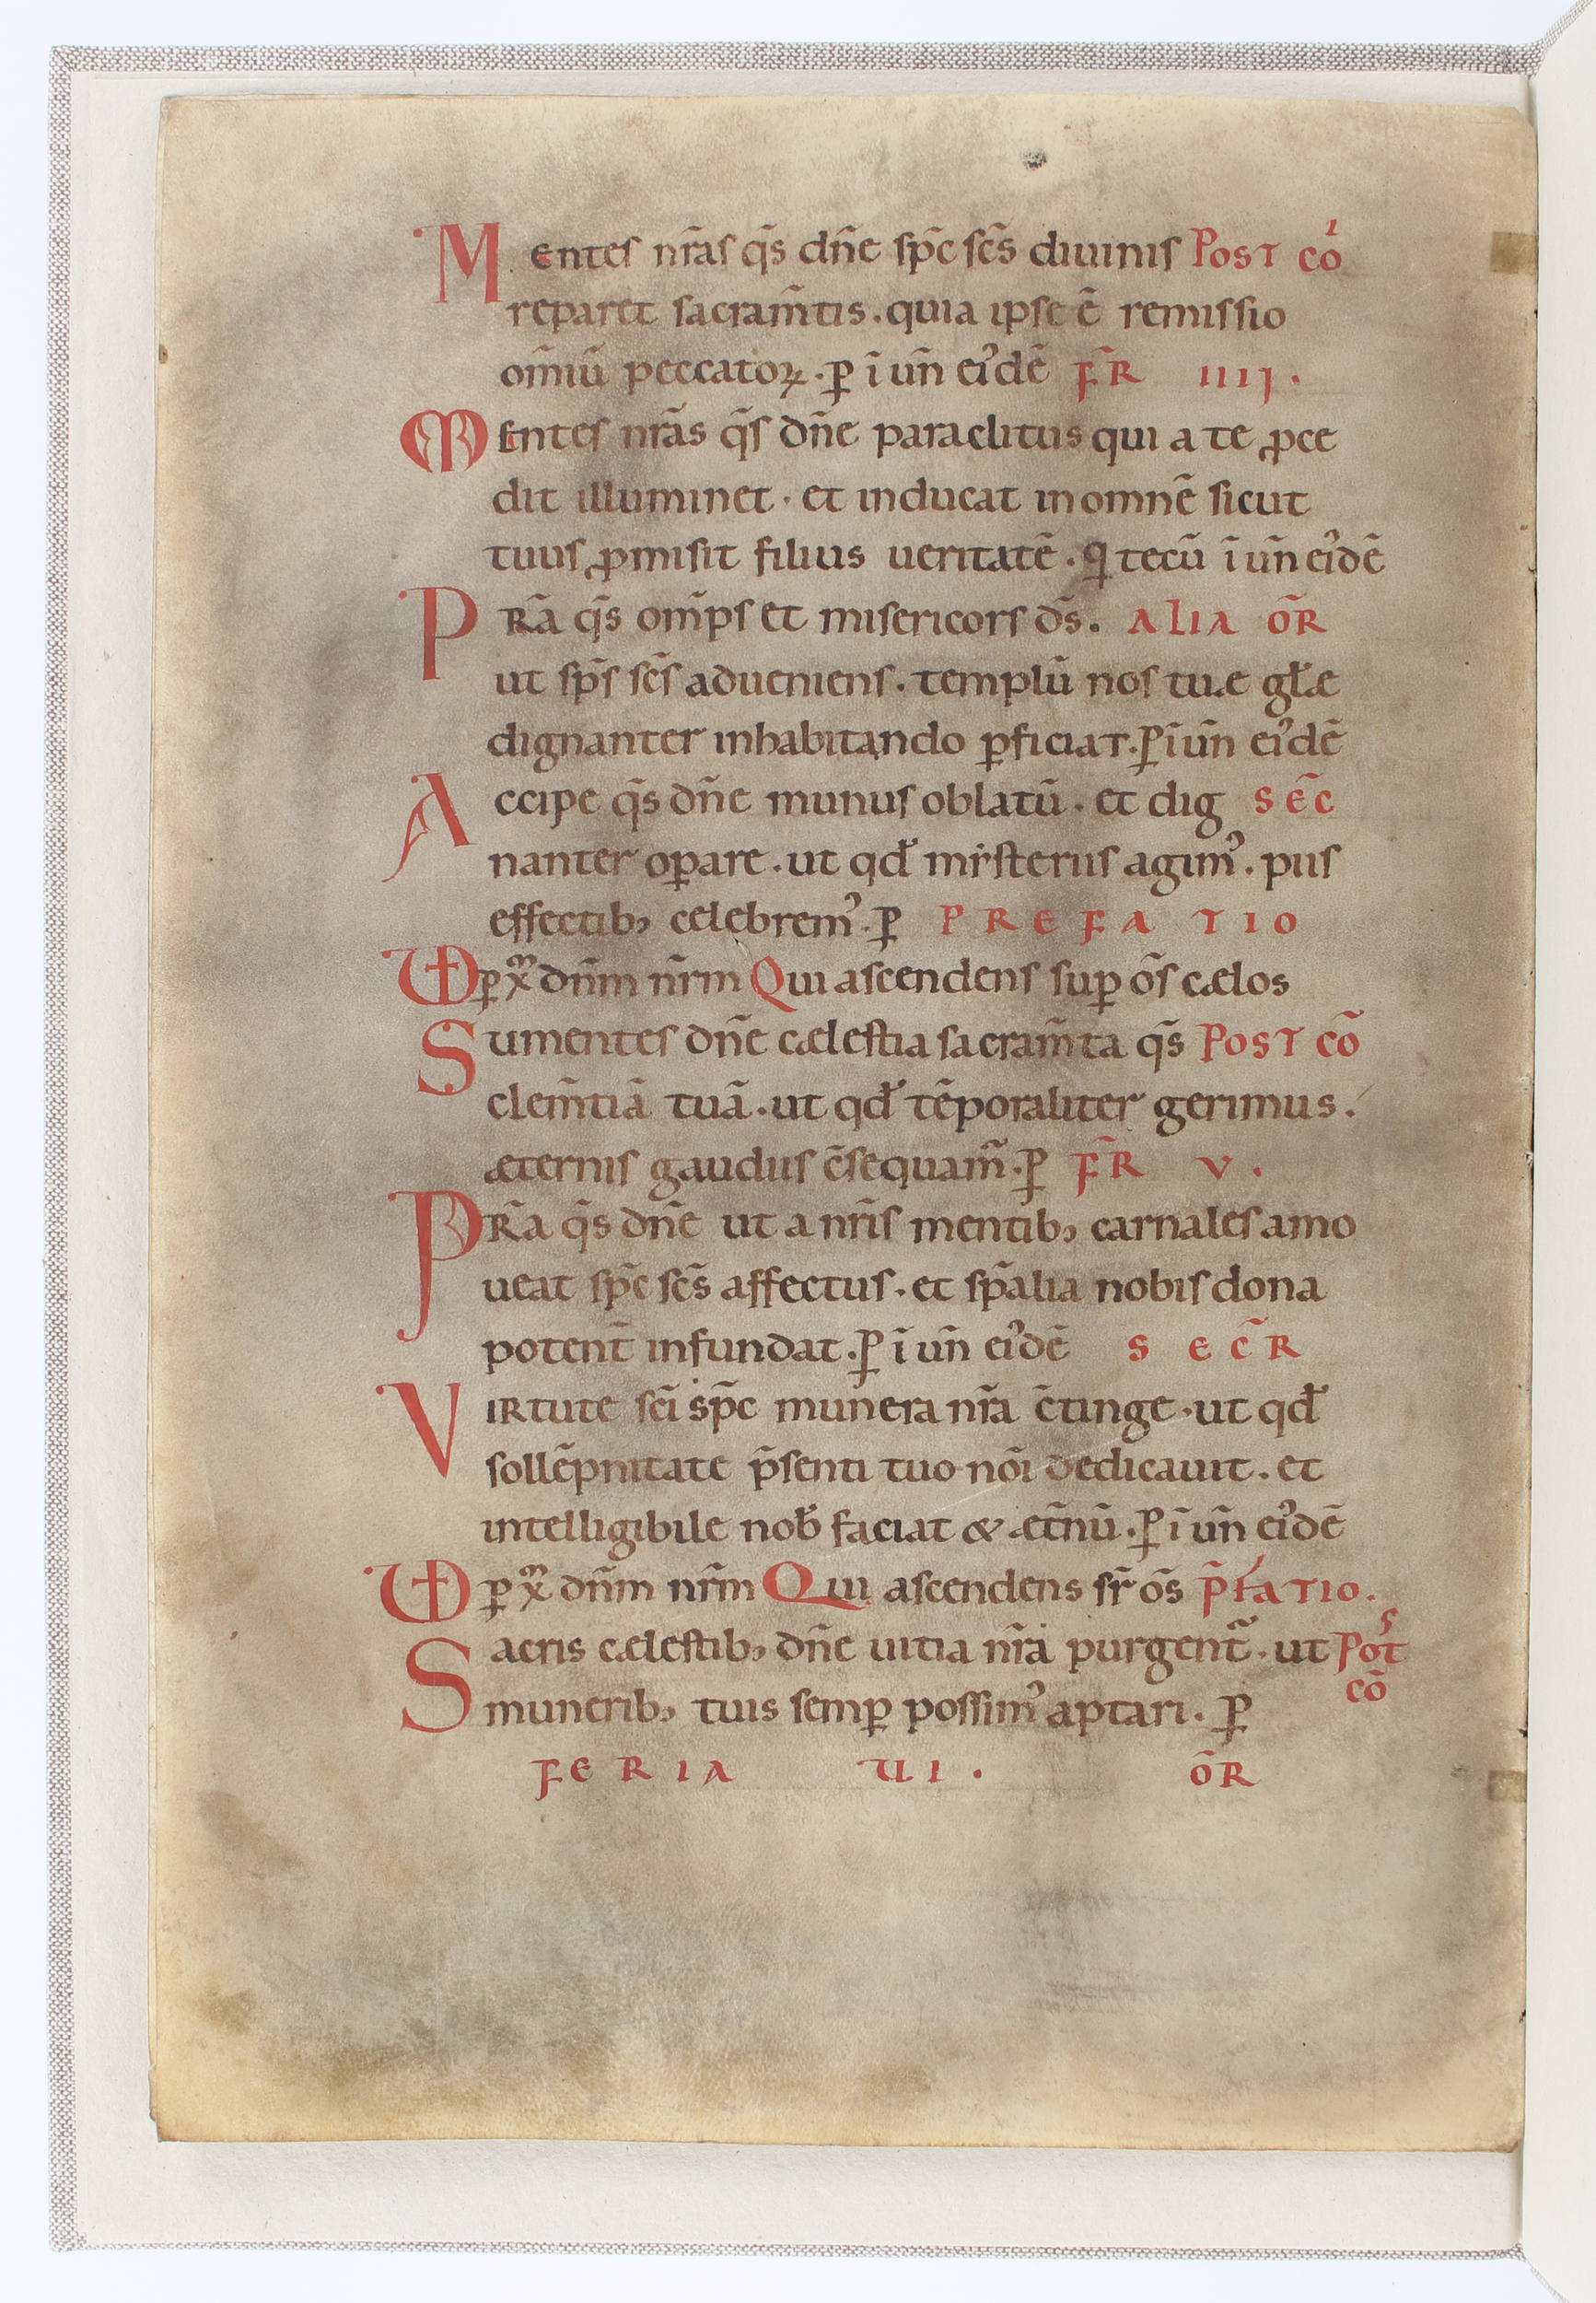 Mentes nr̄as q̄s dn̄e sp̄c sc̄s diuinis Post cō
reparet sacram̄tis. quia ipse ē remissio
om̄iū peccatoꝝ. ꝑ ī un̄ eiꝰdē F̄R IIIJ.
Mentes nr̄as q̄s dn̄e paraclitus qui a te ꝓce
dit illuminet. et inducat in omnē sicut
tuus ꝓmisit filius ueritatē. ꝗ tecū ī un̄ eiꝰdē
PR̄a q̄s om̄ps et misericors ds̄. ALIA ŌR
ut sp̄s sc̄s adueniens. templū nos tuæ gl̄æ
dignanter inhabitando ꝑficiat. ꝑ ī un̄ eiꝰdē
Accipe q̄s dn̄e munus oblatū. et dig SEC̄
nanter oꝑare. ut qđ mẏsteriis agimꝰ. piis
effectibꝫ celebremꝰ. ꝑ PREFATIO
VD ꝑ xp̄m dn̄m nr̄m Qui ascendens suꝑ ōs cælos
Sumentes dn̄e cælestia sacram̄ta q̄s Post cō
clem̄tiā tuā. ut qđ tēporaliter gerimus.
æternis gaudiis c̄sequam̄. ꝑ F̄R V.
PR̄a q̄s dn̄e ut a nr̄is mentibꝫ carnales amo
ueat sp̄c sc̄s affectus. et sp̄alia nobis dona
potent̄ infundat. ꝑ ī un̄ eiꝰdē SEC̄R
Virtute sc̄i sp̄c munera nr̄a c̄tinge. ut qđ
sollēpnitate p̄senti tuo nōi dedicauit. et
intelligibile nob̄ faciat & æt̄nū. ꝑ ī un̄ eiꝰdē
VD ꝑ xp̄m dn̄m nr̄m Qui ascendens sr̄ ōs P̄FATIO.
Sacris cælestibꝫ dn̄e uitia nr̄a purgent̄. ut Post
muneribꝫ tuis semꝑ possimꝰ aptari. ꝑ cō
FERIA UI. ŌR